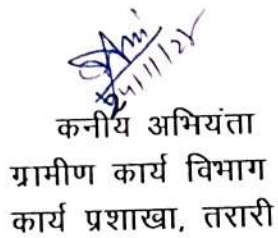 24/11/25
कनीय अभियंता
ग्रामीण कार्य विभाग
कार्य प्रशाखा, तरारी